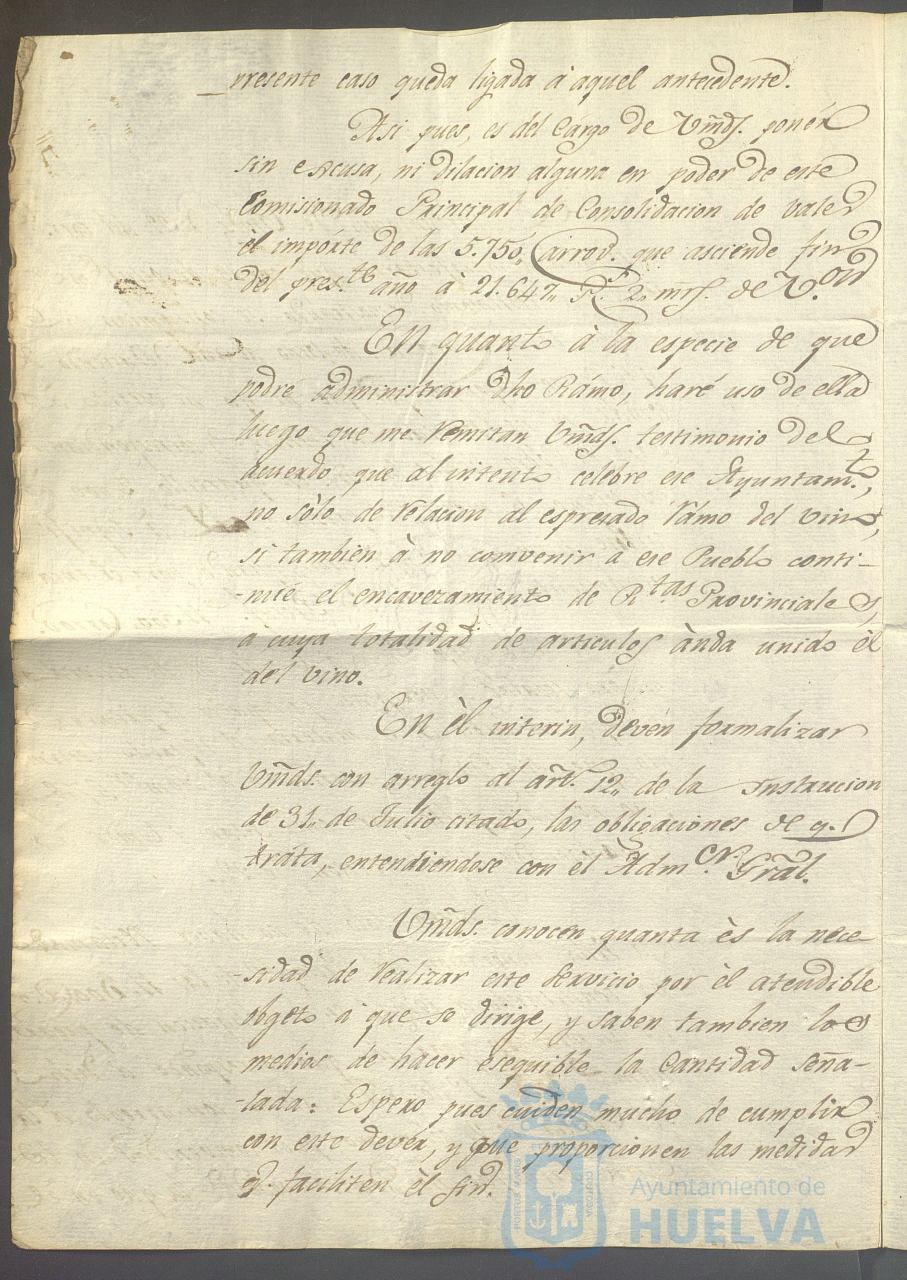 presente caso queda ligada à aquel antecedente.
Asi pues, es del Cargo de Vm̃ds. ponér
sin escusa, ni dilacion alguna en poder de este
Comisionado Principal de Consolidacion de vales
èl impórte de las 5.750,, arrov.s que asciende fin
del pres.te año à 21.647,, R.s 2,, mrs. de V.on
En quanto à la especie de que
podré administrar dho Rámo, haré uso de ella
luego que me remitan Vm̃ds. testimonio del
acuerdo que al intento celebre ese Ayuntam.to,
no sòlo de relacion al espresado rámo del vino,
si tambien à no comvenir à ese Pueblo conti-
-nué el encavezamiento de R.tas Provinciales,
à cuya totalidad de articulos ànda unido èl
del vino.
En èl interin, devén formalizar
Vm̃ds. con arreglo al art.o 12,, de la Instrucion
de 31,, de Julio citado, las obligaciones de q.e
tráta, entendiendose con èl Adm.or Grãl.
Vm̃ds. conocen quanta ès la nece-
-sidad de realizar este servicio por èl atendible
obgeto à que se dirige, y saben tambien los
medios de hacer esequible la Cantidad seña-
-lada: Espero pues cuiden mucho de cumplir
con este devér, y que proporcionen las medidas
q.e faciliten èl fin.
Ayuntamiento de
HUELVA